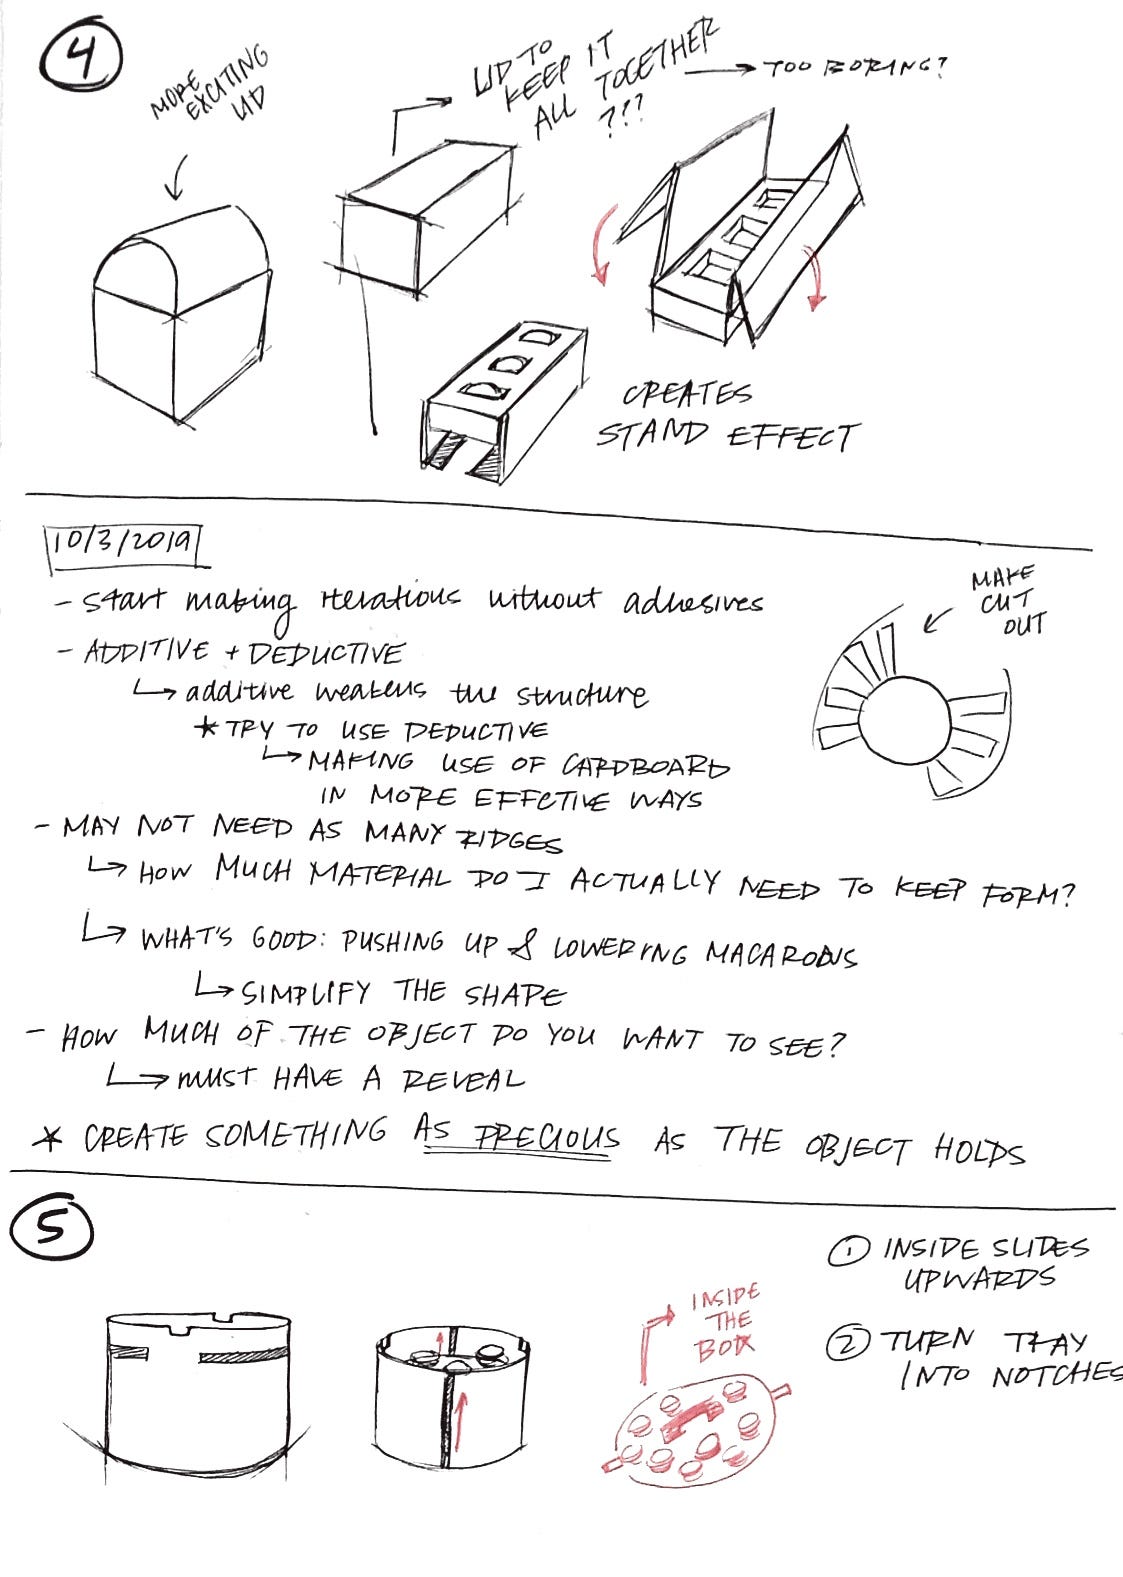 4
MORE
EXCITING
LID
LID TO
KEEP IT
ALL TOGETHER
???
TOO BORING?
CREATES
STAND EFFECT
10/3/2019
- Start making iterations without adhesives
- ADDITIVE + DEDUCTIVE
↳ additive weakens the structure
* TRY TO USE DEDUCTIVE
↳ MAKING USE OF CARDBOARD
IN MORE EFFCTIVE WAYS
MAKE
CUT
OUT
- MAY NOT NEED AS MANY RIDGES
↳ HOW MUCH MATERIAL DO I ACTUALLY NEED TO KEEP FORM?
↳ WHAT'S GOOD: PUSHING UP & LOWERING MACARONS
↳ SIMPLIFY THE SHAPE
- HOW MUCH OF THE OBJECT DO YOU WANT TO SEE?
↳ MUST HAVE A REVEAL
* CREATE SOMETHING AS PRECIOUS AS THE OBJECT HOLDS
5
INSIDE
THE
BOX
① INSIDE SLIDES
UPWARDS
② TURN TRAY
INTO NOTCHES